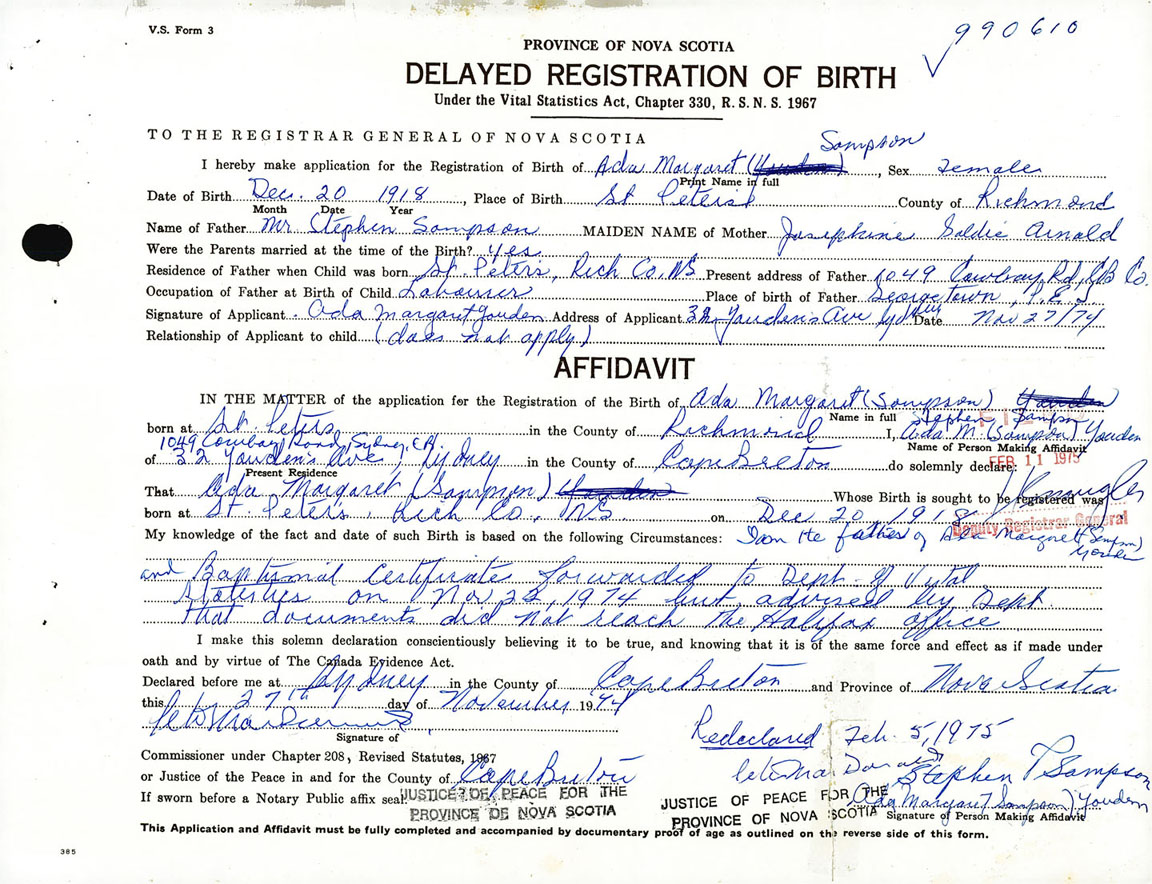 V.S. Form 3
990610
PROVINCE OF NOVA SCOTIA
DELAYED REGISTRATION OF BIRTH
Under the Vital Statistics Act, Chapter 330, R. S. N. S. 1967
TO THE REGISTRAR GENERAL OF NOVA SCOTIA
Sampson
I hereby make application for the Registration of Birth of Ada Margaret (Youden), Sex Female
Print Name in full
Date of Birth Dec. 20 1918, Place of Birth St Peters County of Richmond
Month Date Year
Name of Father Mr Stephen Sampson MAIDEN NAME of Mother Josephine Goldie Arnold
Were the Parents married at the time of the Birth? yes
Residence of Father when Child was born St. Peters, Rich Co. NS Present address of Father 1049 Cowbay Rd, CB Co.
Occupation of Father at Birth of Child Labourer Place of birth of Father Georgetown, P.E.I
Signature of Applicant Ada Margaret Youden Address of Applicant 32 Youden's Ave Sydney Date Nov 27/74
Relationship of Applicant to child (does not apply)
AFFIDAVIT
IN THE MATTER of the application for the Registration of the Birth of Ada Margaret (Sampson) Youden
Name in full Stephen Sampson
born at St. Peters in the County of Richmond I, Ada M. (Sampson) Youden
1049 Cowbay Road, Sydney, C.B. Name of Person Making Affidavit
of 32 Youden's Ave, Sydney in the County of Cape Breton do solemnly declare:
FEB 11 1975
Present Residence
That Ada Margaret (Sampson) Youden Whose Birth is sought to be registered was
born at St. Peter's, Rich Co., N.S. on Dec 20, 1918
Deputy Registrar General
My knowledge of the fact and date of such Birth is based on the following Circumstances: I am the father of Ada Margaret (Sampson)
Youden
and Baptismal Certificate forwarded to Dept. of Vital
Statistics on Nov 22, 1974 but advised by Dept.
that documents did not reach the Halifax office
I make this solemn declaration conscientiously believing it to be true, and knowing that it is of the same force and effect as if made under
oath and by virtue of The Canada Evidence Act.
Declared before me at Sydney in the County of Cape Breton and Province of Nova Scotia
this 27th day of November 1974
Signature of
Redeclared Feb. 5, 1975
Commissioner under Chapter 208, Revised Statutes, 1967
or Justice of the Peace in and for the County of Cape Breton
Stephen T Sampson
If sworn before a Notary Public affix seal:
JUSTICE OF PEACE FOR THE
PROVINCE OF NOVA SCOTIA
JUSTICE OF PEACE FOR THE
PROVINCE OF NOVA SCOTIA
(Ada Margaret Sampson) Youden
Signature of Person Making Affidavit
This Application and Affidavit must be fully completed and accompanied by documentary proof of age as outlined on the reverse side of this form.
385